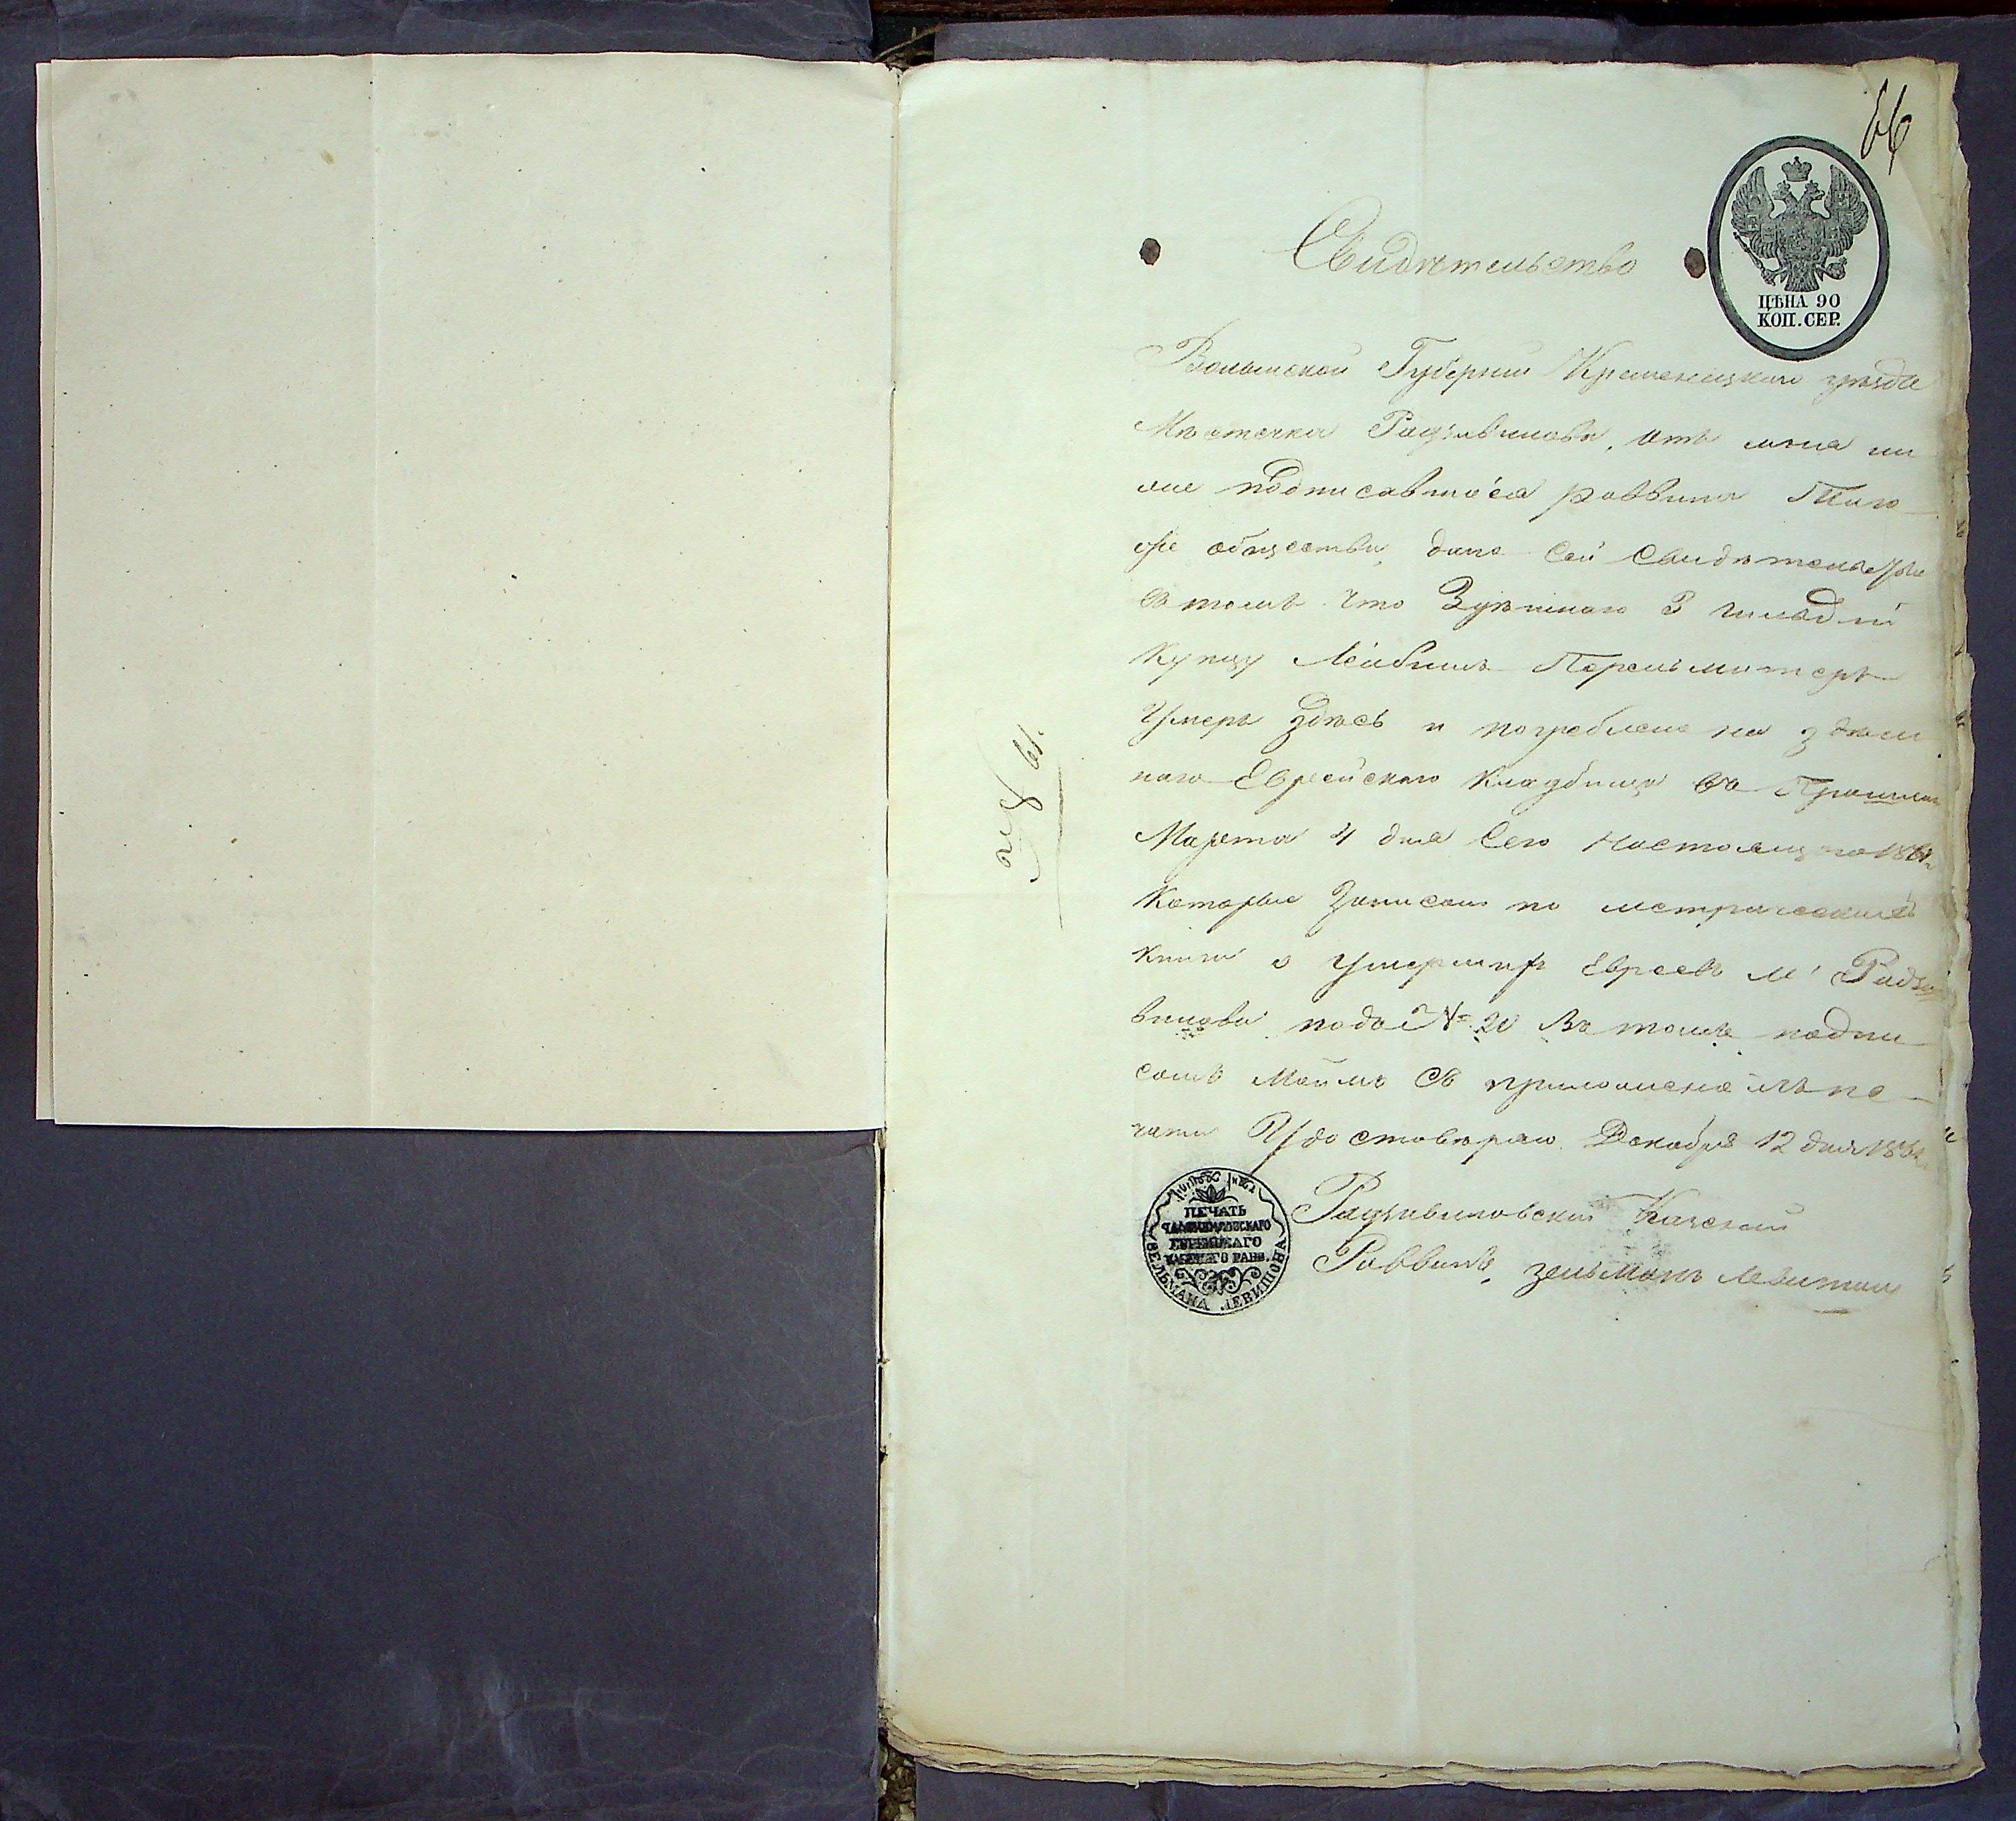 66
Свидѣтельство
ЦѢНА 90
КОП. СЕР.
Волынской Губерніи Кременецкаго уѣзда
Мѣстечка Радзивилова, отъ мѣна ни
же подписавшося раввина Того
же общества, дана Сей Свидѣтельство
въ томъ что Здѣшнаго 3 гильдіи
Купцу Лейбишъ Перельмитеръ
Умеръ здѣсь и погребленъ на здѣш
наго Еврейскаго Кладбища во Прошлаго
Марта 4 дня Сего Настоящаго 1861
Которые Записанъ по метрическимъ
книги о Умершихъ Евреевъ м. Радзи
вилова подъ № 20 Въ томъ подпи
сомъ Моимъ Съ приложеніемъ пе
чати Удостовѣряю Декабря 12 дня 1861
Радзивиловскій Казенный
Раввинъ, Зельманъ Левитанъ
ПЕЧАТЬ
ЕВРЕЙСКАГО